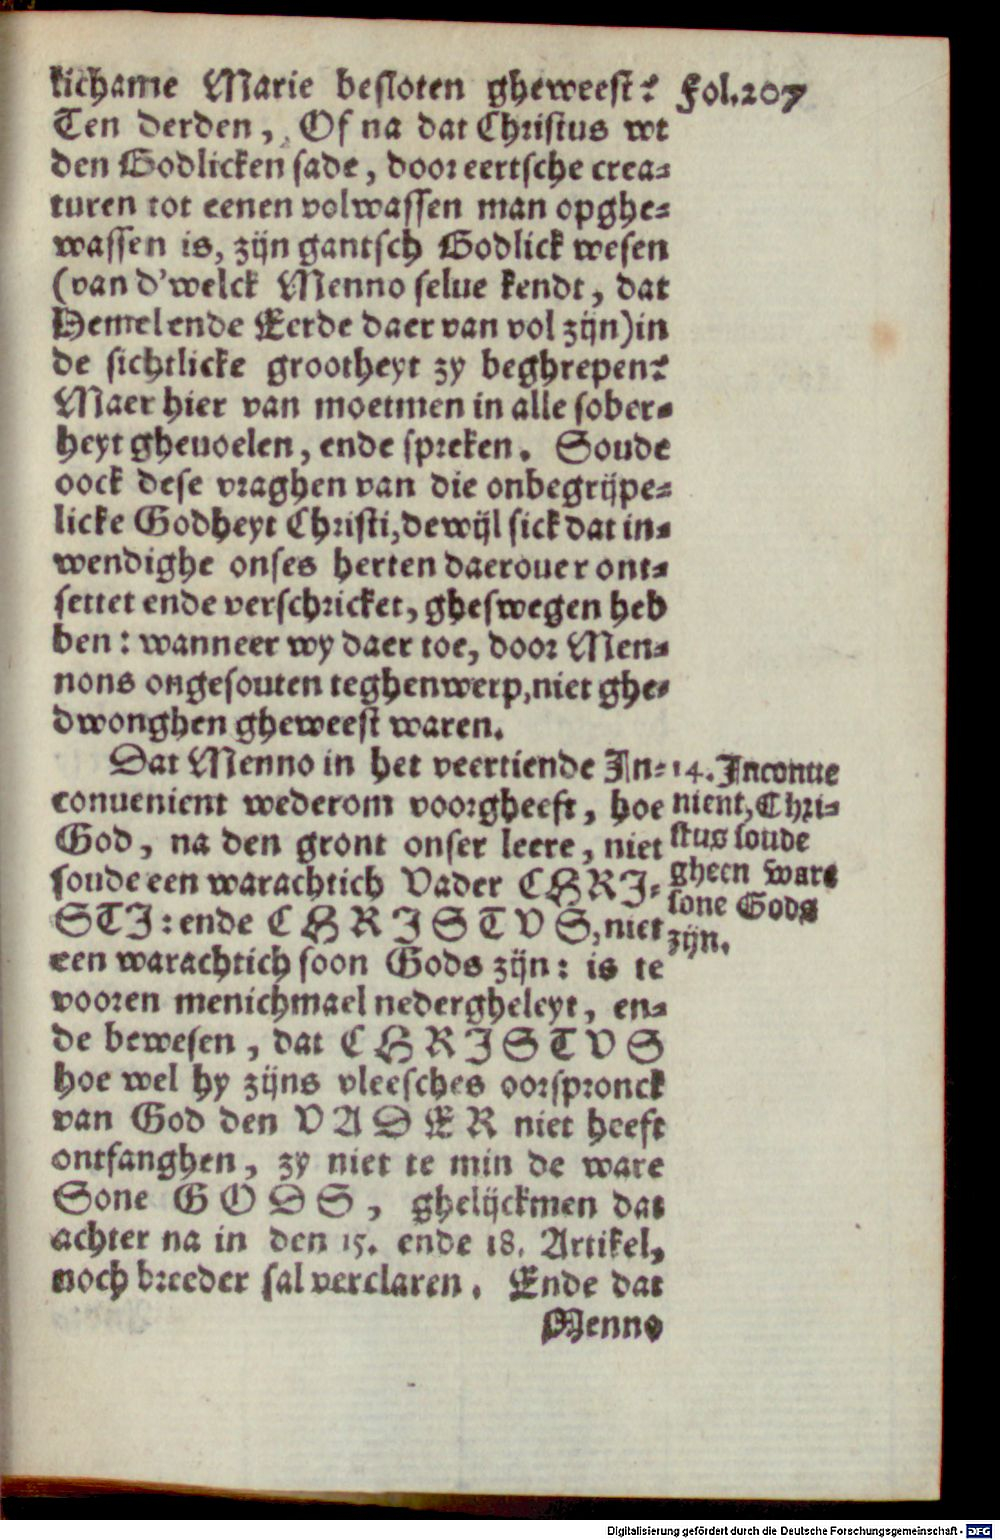 lichame Marie besloten gheweest? Fol.207
Ten derden, Of na dat Christus wt
den Godlicken sade, door eertsche crea-
turen tot eenen volwassen man opghe-
wassen is, zijn gantsch Godlick wesen
(van d'welck Menno selue kendt, dat
Hemel ende Eerde daer van vol zijn) in
de sichtlicke grootheyt zy beghrepen?
Maer hier van moetmen in alle sober-
heyt gheuoelen, ende spreken. Soude
oock dese vraghen van die onbegrijpe-
licke Godheyt Christi, dewijl sick dat in-
wendighe onses herten daerouer ont-
settet ende verschricket, gheswegen heb
ben: wanneer wy daer toe, door Men-
nons ongesouten teghenwerp, niet ghe-
dwonghen gheweest waren.
Dat Menno in het veertiende In-
conuenient wederom voorgheeft, hoe
God, na den gront onser leere, niet
soude een warachtich Vader CHRI-
STI: ende CHRISTVS, niet
een warachtich soon Gods zijn: is te
vooren menichmael nedergheleyt, en-
de bewesen, dat CHRISTVS
hoe wel hy zijns vleesches oorspronck
van God den VADER niet heeft
ontfanghen, zy niet te min de ware
Sone GODS, ghelijckmen dat
achter na in den 15. ende 18. Artikel,
noch breeder sal verclaren. Ende dat
Menno
14. Inconue
nient, Chri-
stus soude
gheen ware
sone Gods
zijn.
Digitalisierung gefördert durch die Deutsche Forschungsgemeinschaft - DFG